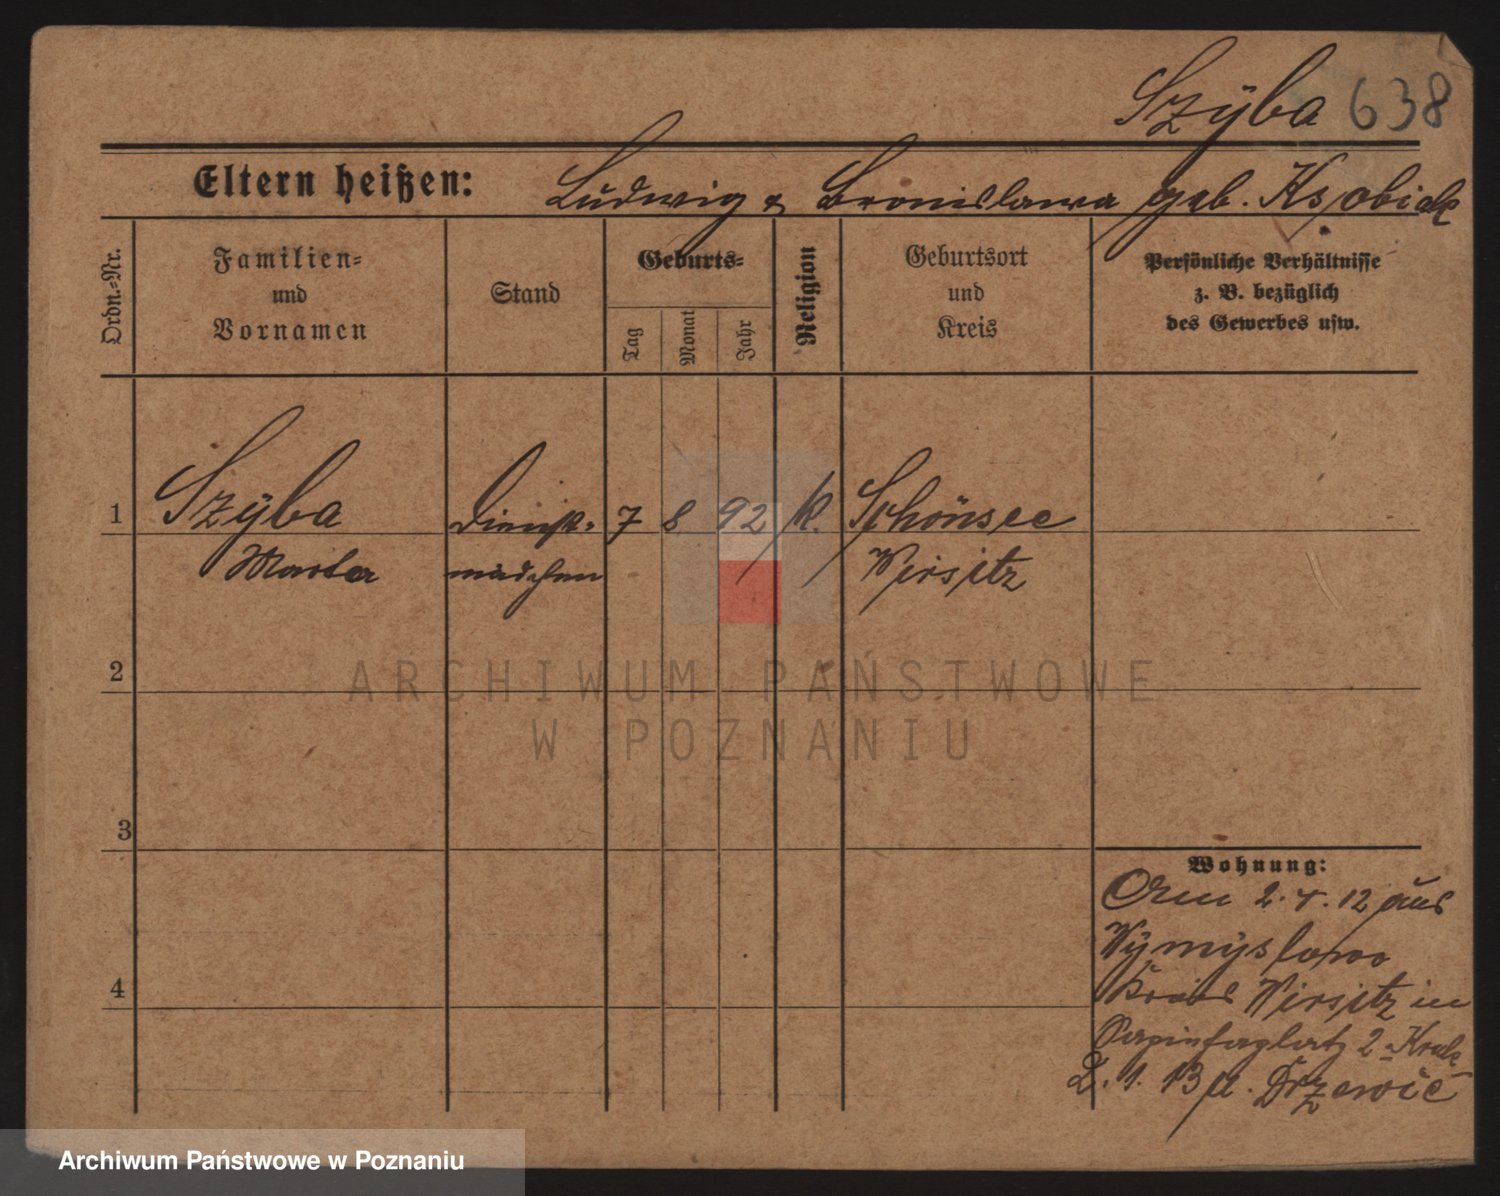 Szÿba 638
Eltern heißen: Ludwig & Bronislawa geb.
Ordn.-Nr.
Familien-
und
Vornamen
Stand
Geburts-
Tag
Monat
Jahr
Religion
Geburtsort
und
Kreis
Persönliche Verhältnisse
z. B. bezüglich
des Gewerbes usw.
1 Szÿba Dienst- 7 8 92 k. Schönsee
Marta mädchen Wirsitz
2
3
4
Wohnung:
Am 2.4.12 aus
Wÿmÿslowo
Kreis Wirsitz in
2
2. 1. 13 n.
ARCHIWUM PAŃSTWOWE
W POZNANIU
Archiwum Państwowe w Poznaniu